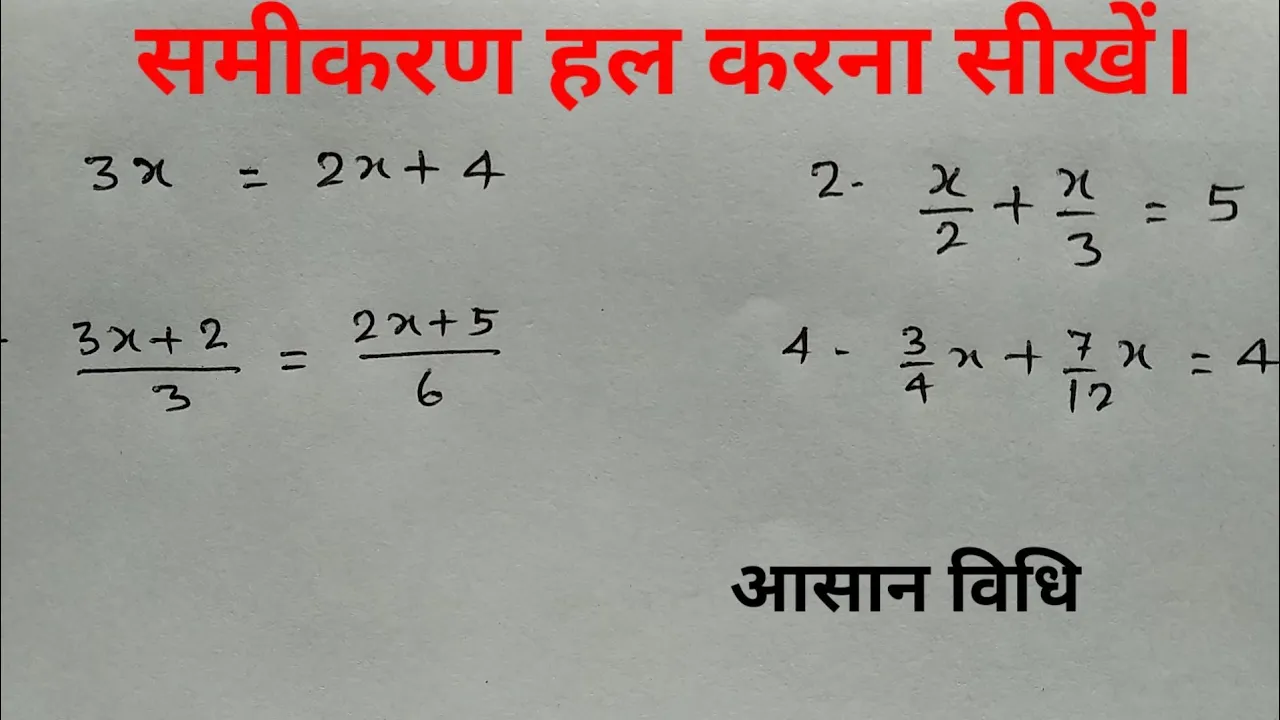 समीकरण हल करना सीखें।
3x = 2x + 4
2- x/2 + x/3 = 5
- (3x + 2)/3 = (2x + 5)/6
4- 3/4 x + 7/12 x = 4
आसान विधि